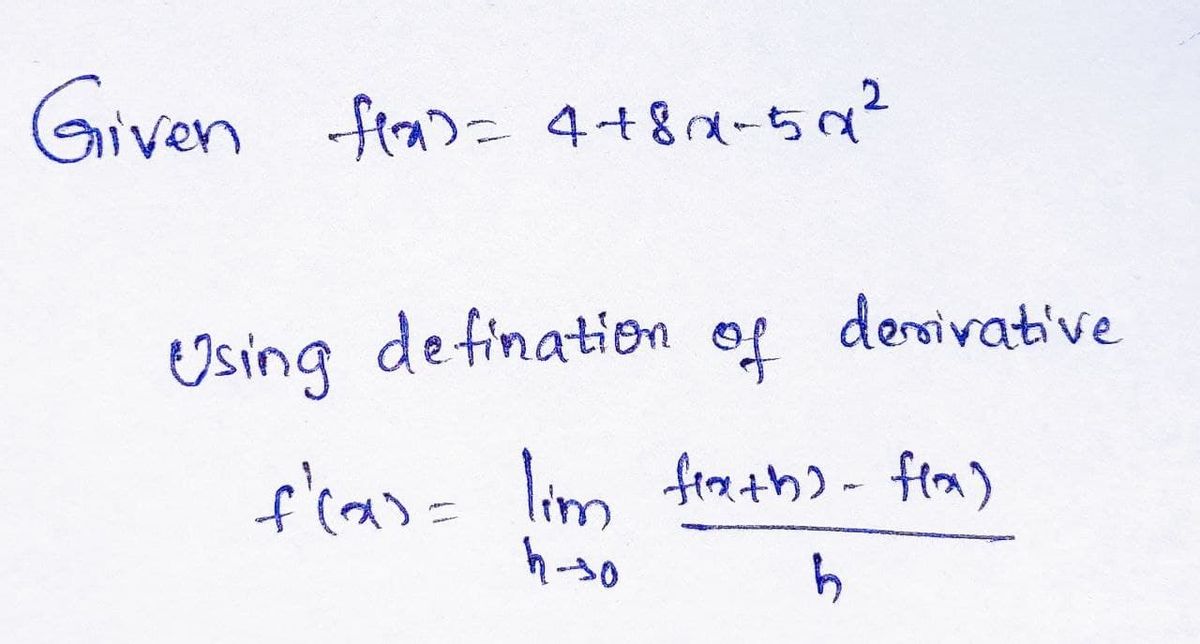 Given f(x) = 4+8x-5x²
Using defination of derivative
f'(x) = lim f(x+h) - f(x)
h→0 h